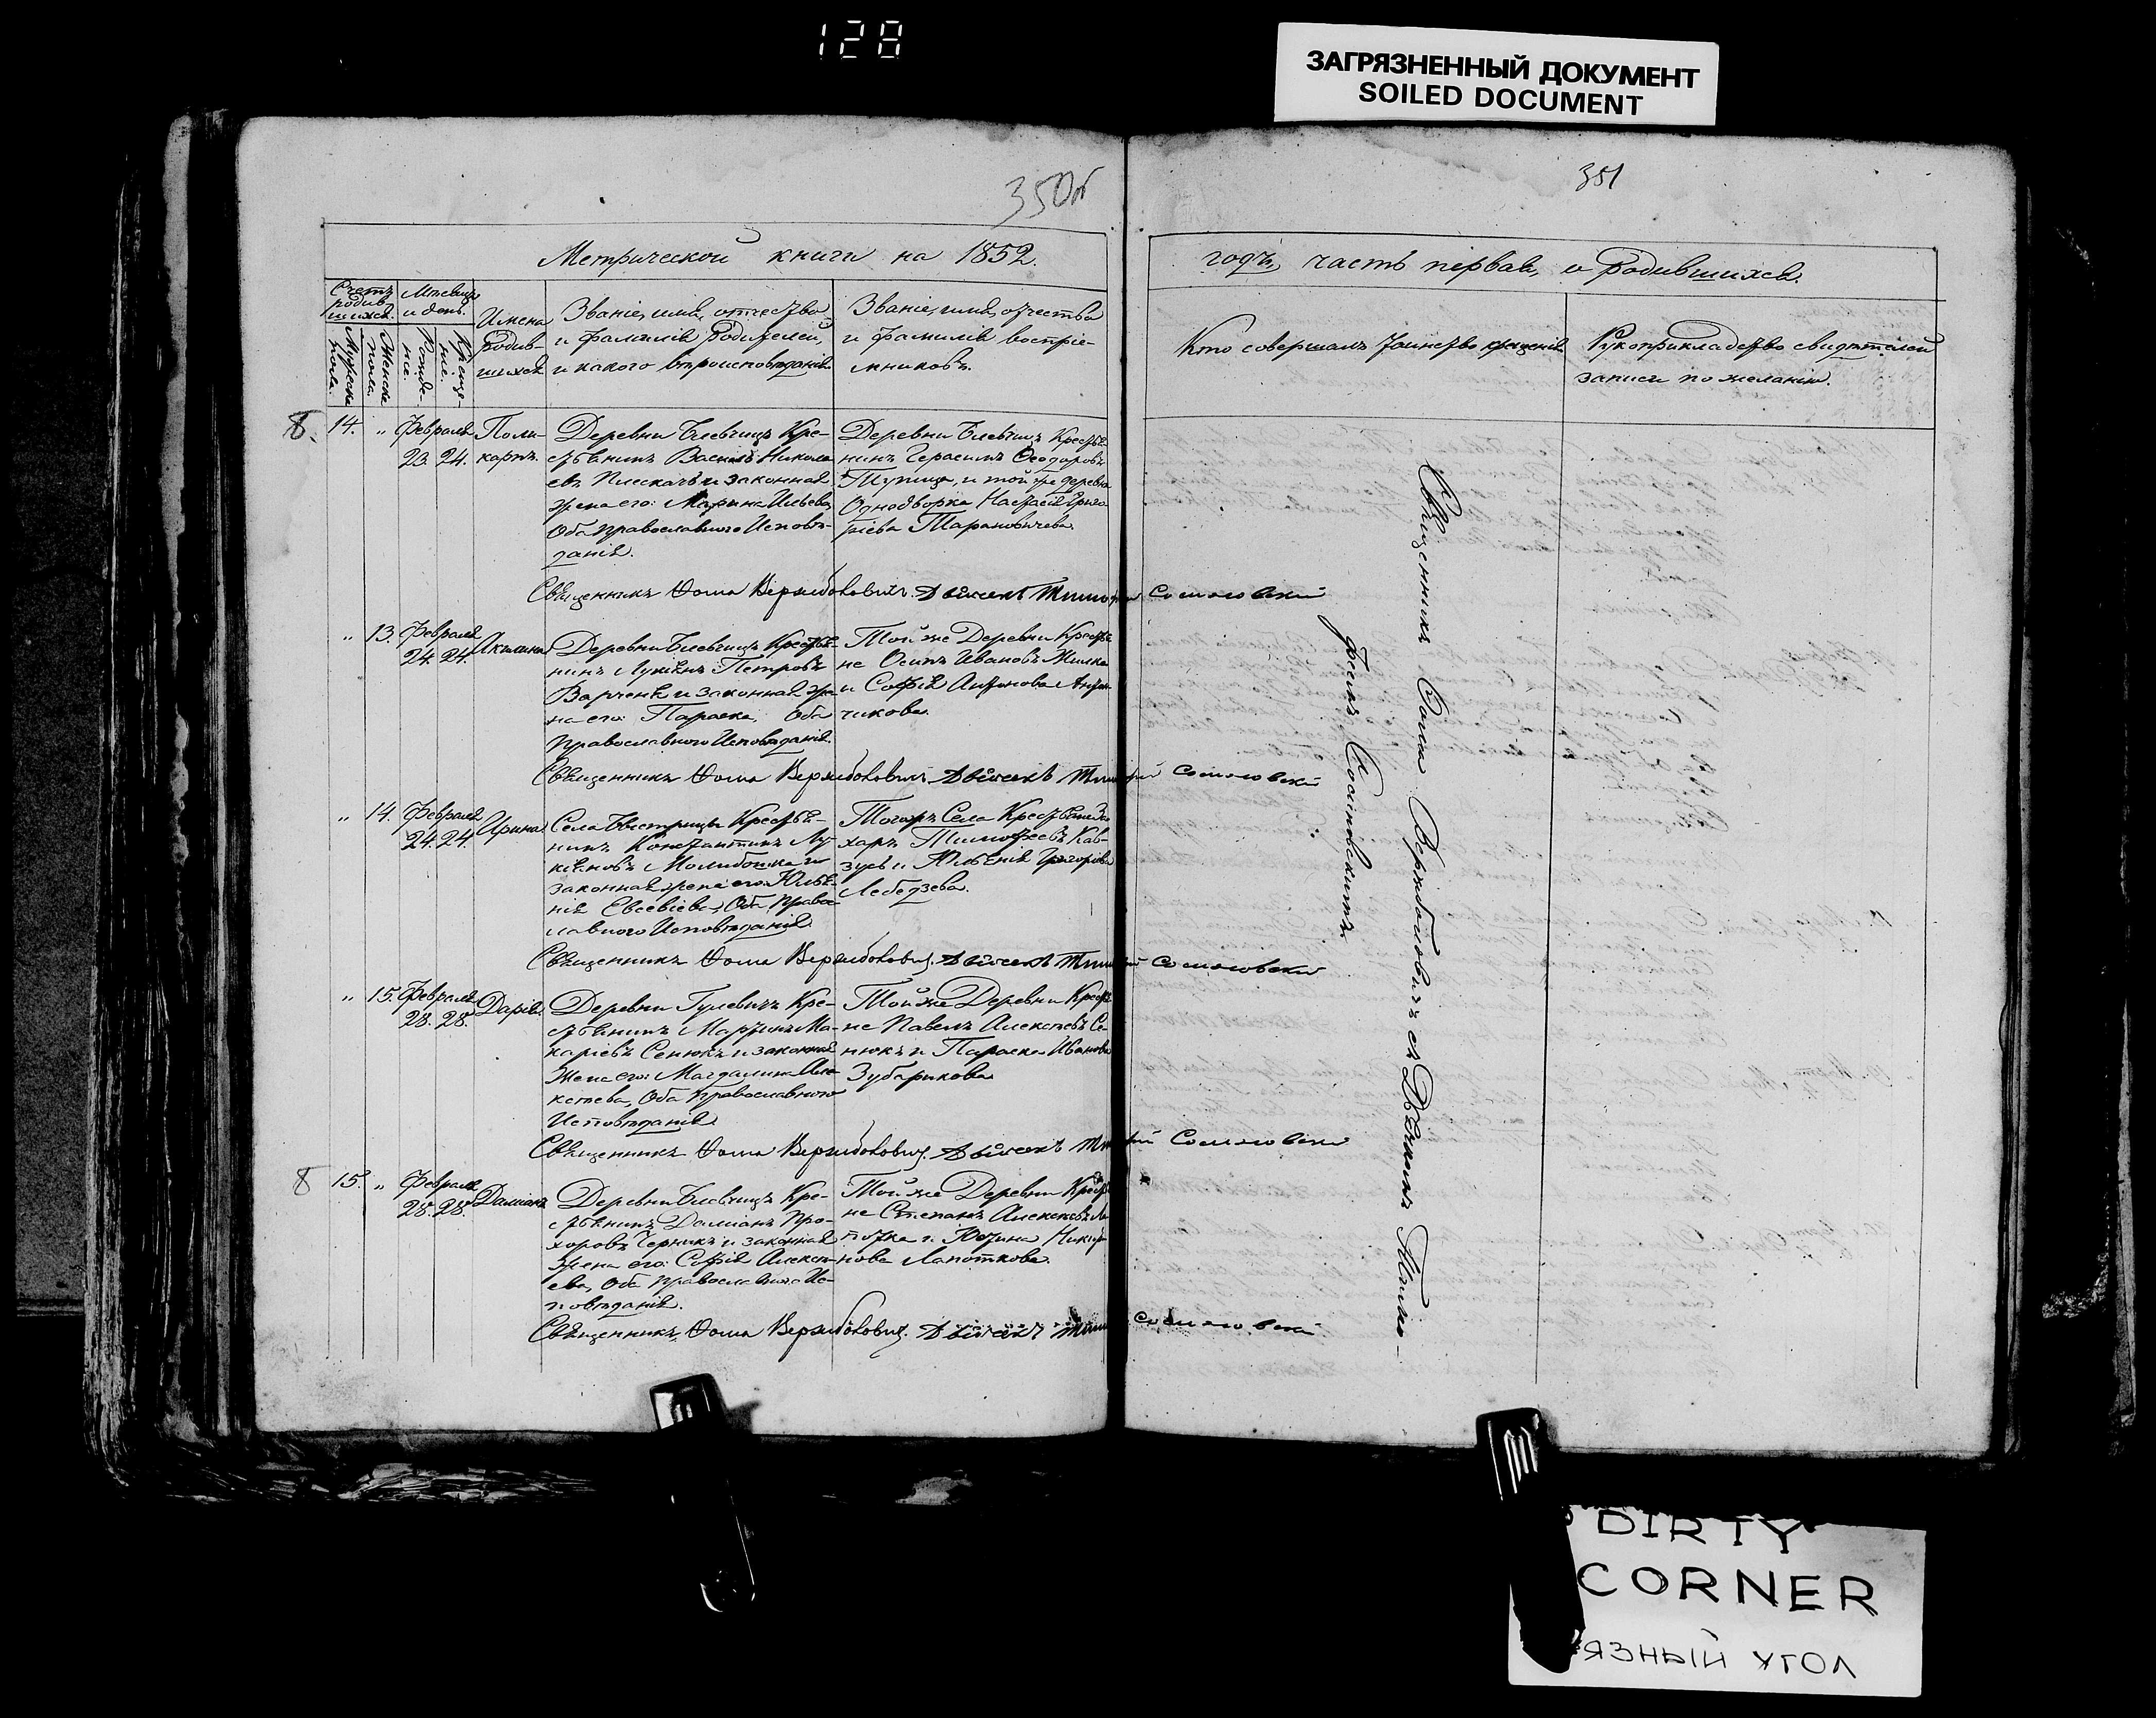 128
ЗАГРЯЗНЕННЫЙ ДОКУМЕНТ
SOILED DOCUMENT
350об
351
Метрической книги на 1852.
годъ, часть первая, о родившихся.
Счетъ родив-
шихся.
Мужеска
пола.
Женска
пола.
Мѣсяцъ
и день.
Рожде-
ніе.
Креще-
ніе.
Имена
родив-
шихся
Званіе, имя, отчество
и фамилія родителей,
и какого вѣроисповѣданія.
Званіе, имя, отчество
и фамилія воспріе-
мниковъ.
Кто совершалъ таинство крещенія
Рукоприкладство свидѣтелей
записи по желанію.
8.
14. „ Февраля
23. 24.
Поли-
карпъ.
Деревни Блевчицъ Кре-
стьянинъ Василь Никола-
евъ Плескачъ и законная
жена его: Марина Ильева,
Оба православнаго Исповѣ-
данія.
Деревни Блевчицъ Крестья-
нинъ Герасимъ Ѳеодоровъ
Тупица, и той же деревни
Однодворка Настасія Григо-
ріева Тарановичева.
Священникъ Ѳома Вержболовичъ. Дьячекъ Тимофей Сосиновскій
„ 13. Февраля
24. 24.
Акилина
Деревни Блевчицъ Крестья-
нинъ Лукіянъ Петровъ
Варченя и законная же-
на его: Параска, Оба
Православнаго Исповѣданія.
Той же Деревни Крестья-
не Осипъ Ивановъ Милка
и Софія Антонова
чикова.
Священникъ Ѳома Вержболовичъ Дьячекъ Тимофей Сосиновскій
„ 14. Февраля
24. 24.
Ирина
Села Быстрицы Крестья-
нинъ Константинъ Лу-
кіяновъ Молибошка и
законная жена его: Юльꙗ-
нія Евсевіева, Оба Право-
славнаго Исповѣданія.
Тогожъ Села Крестьяне За-
харъ Тимофеевъ Кав-
зусь и Юльянія Григоріева
Лебедзева.
Священникъ Ѳома Вержболовичъ. Дьячекъ Тимофей Сосиновскій
„ 15. Февраля
28. 28.
Дарія.
Деревни Гулевичъ Кре-
стьянинъ Мартинъ Ма-
каріевъ Сенюкъ и законная
жена его: Магдалина Але-
ксѣева, Оба Православнаго
Исповѣданія.
Той же Деревни Крестья-
не Павелъ Алексѣевъ Се-
нюкъ и Параска Иванова
Зубарикова.
Священникъ Ѳома Вержболовичъ. Дьячекъ Тимофей Сосиновскій
8
15. „ Февраля
28. 28.
Даміанъ
Деревни Блевчицъ Кре-
стьянинъ Даміанъ Про-
хоровъ Черникъ и законная
жена его: Софія Алексѣ-
ева, Оба Православнаго Ис-
повѣданія.
Той же Деревни Крестья-
не Степанъ Алексѣевъ Ла-
потка и Юстина
нова Лапоткова.
Священникъ Ѳома Вержболовичъ. Дьячекъ Тимофей Сосиновскій
Священникъ Ѳома Вержболовичъ съ Дьячкомъ Тимо-
феемъ Сосиновскимъ.
DIRTY
CORNER
ЯЗНЫЙ УГОЛ